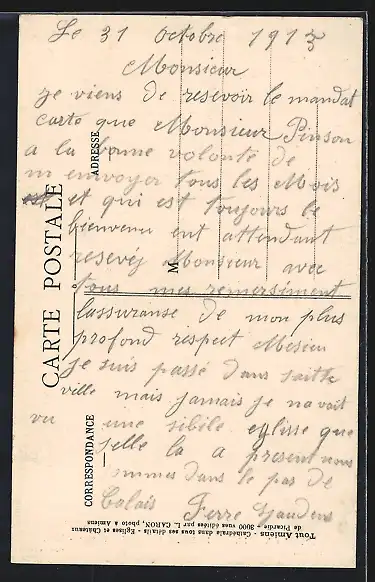 Le 31 octobre 1913
Monsieur
je viens de resevoir le mandat
carte que Monsieur Pinson
a la bonne volonté de
m envoyer tous les Mois
et qui est toujours le
bienvenu ent attendant
resevéj Monsieur avec
tous mes remersiment
lassuranse de mon plus
profond respect Mesieu
je suis passé dans saitte
ville mais jamais je navait
vu une sibile eglisse que
selle la a present nous
sommes dans le pas de
Calais Ferre
CARTE POSTALE
ADRESSE
M
CORRESPONDANCE
Tout Amiens - Cathédrale dans tous ses détails - Eglises et Châteaux
de Picardie - 3000 vues éditées par L. CARON, photo à Amiens